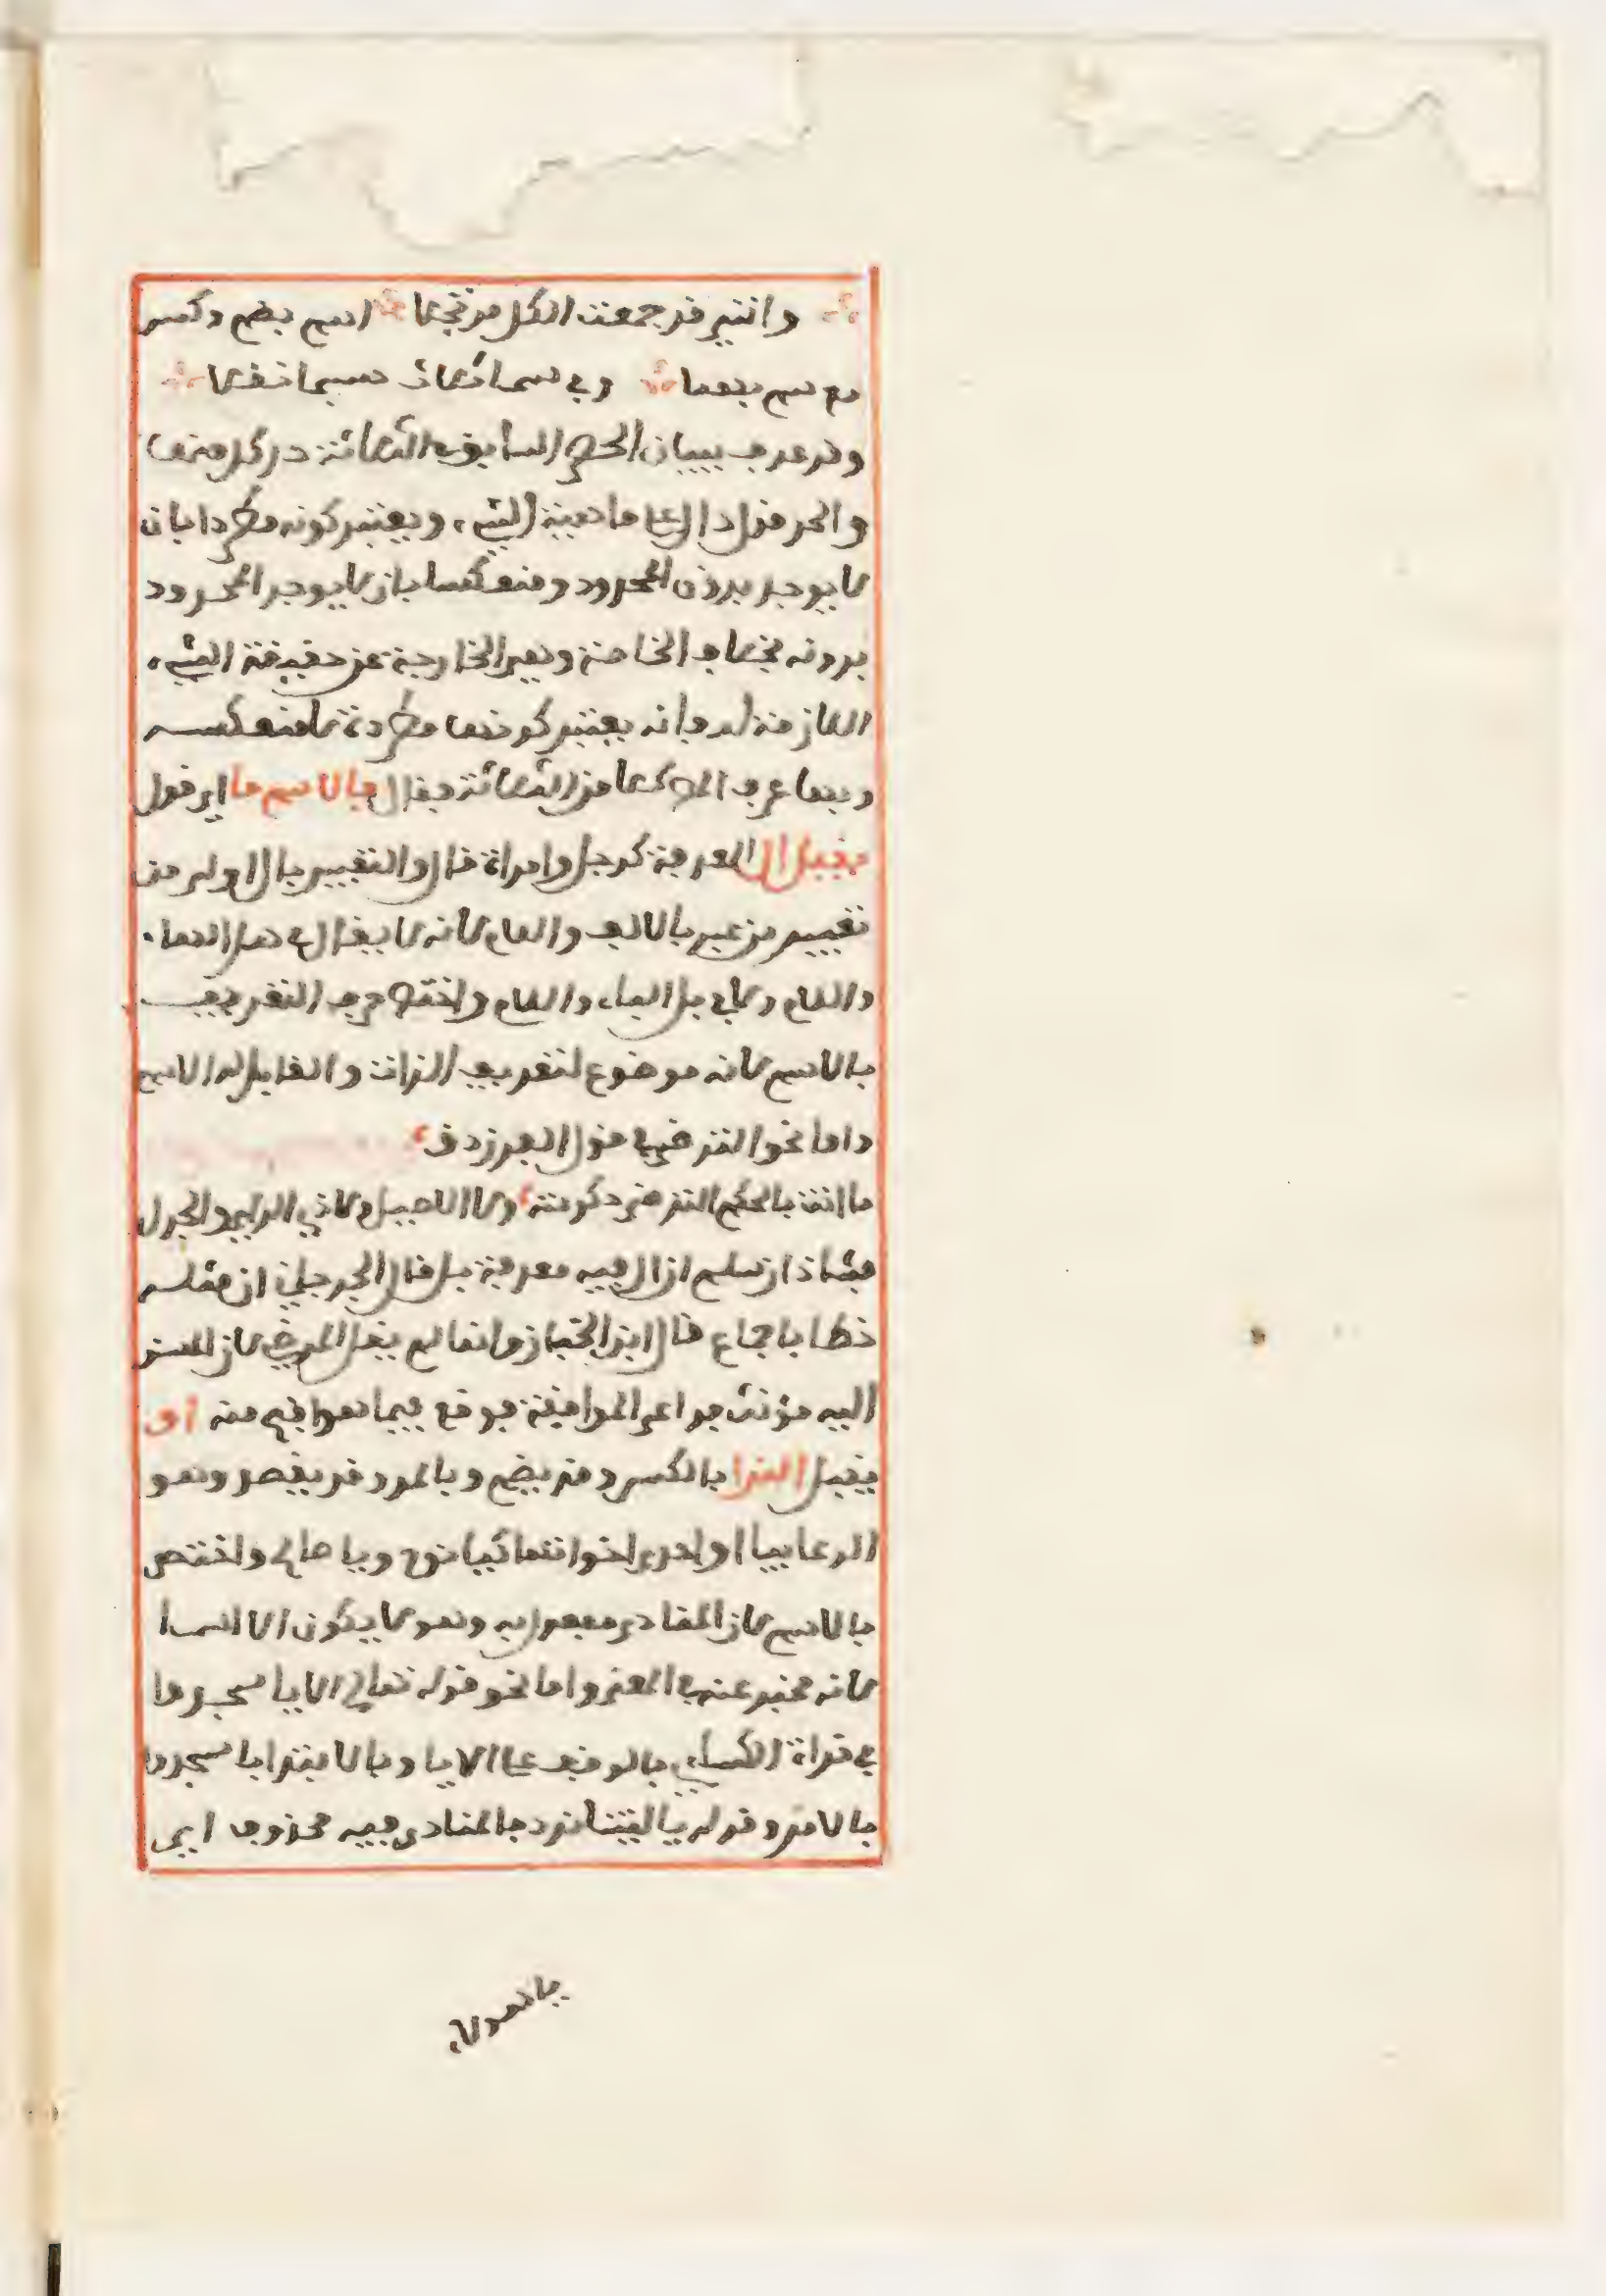 وانني قد جمعت الكل مرتجلا اسم بضم وكسر
مع سم بهما وفي سما ثلاث سيما نقلا
وقد عرف ببيان الحصر السابق الثلاثة حد كل منها
والحد قول دال على ماهية الشيء ويعتبر كونه مطردا بان
لا يوجد بدون المحدود ومنعكسا بان لا يوجد المحدود
بدونه بخلاف الخاصة وهي الخارجة عن حقيقة الشيء
اللازمة له فانه يعتبر كونها مطردة لا منعكسة
وبها عرف المص كلا من الثلاثة فقال فالاسم ما اي قول
يقبل ال المعرفة كرجل وامراة قال والتعبير بال اولى من
تعبير من عبر بالالف واللام لانه لا يقال في هل الهاء
واللام ولا في بل الباء واللام واختص حرف التعريف
بالاسم لانه موضوع لتعريف الذات والقابل له الاسم
واما نحو الترضى في قول الفرزدق
ما انت بالحكم الترضى حكومته ولا الاصيل ولا ذي الراي والجدل
فشاذ ان سلم ان ال فيه معرفة بل قال الجرجاني ان مثله
خطا باجماع قال ابن الخباز وانما لم يقل المرضي لان المسند
اليه مؤنث فراعى الموافقة فوقع فيما هو اقبح منه او
يقبل الندا بالكسر وقد يضم وبالمد وقد يقصر وهو
الدعا بيا او احدى اخواتها كيا نوح ويا صالح واختص
بالاسم لان المنادى مفعول به وهو لا يكون الا اسما
لانه مخبر عنه في المعنى واما نحو قوله تعالى الا يا اسجدوا
في قراة الكسائي بالوقف على الا يا وبالابتدا باسجدوا
بالامر وقوله يا ليتنا نرد فالمنادى فيه محذوف اي
يا هؤلاء